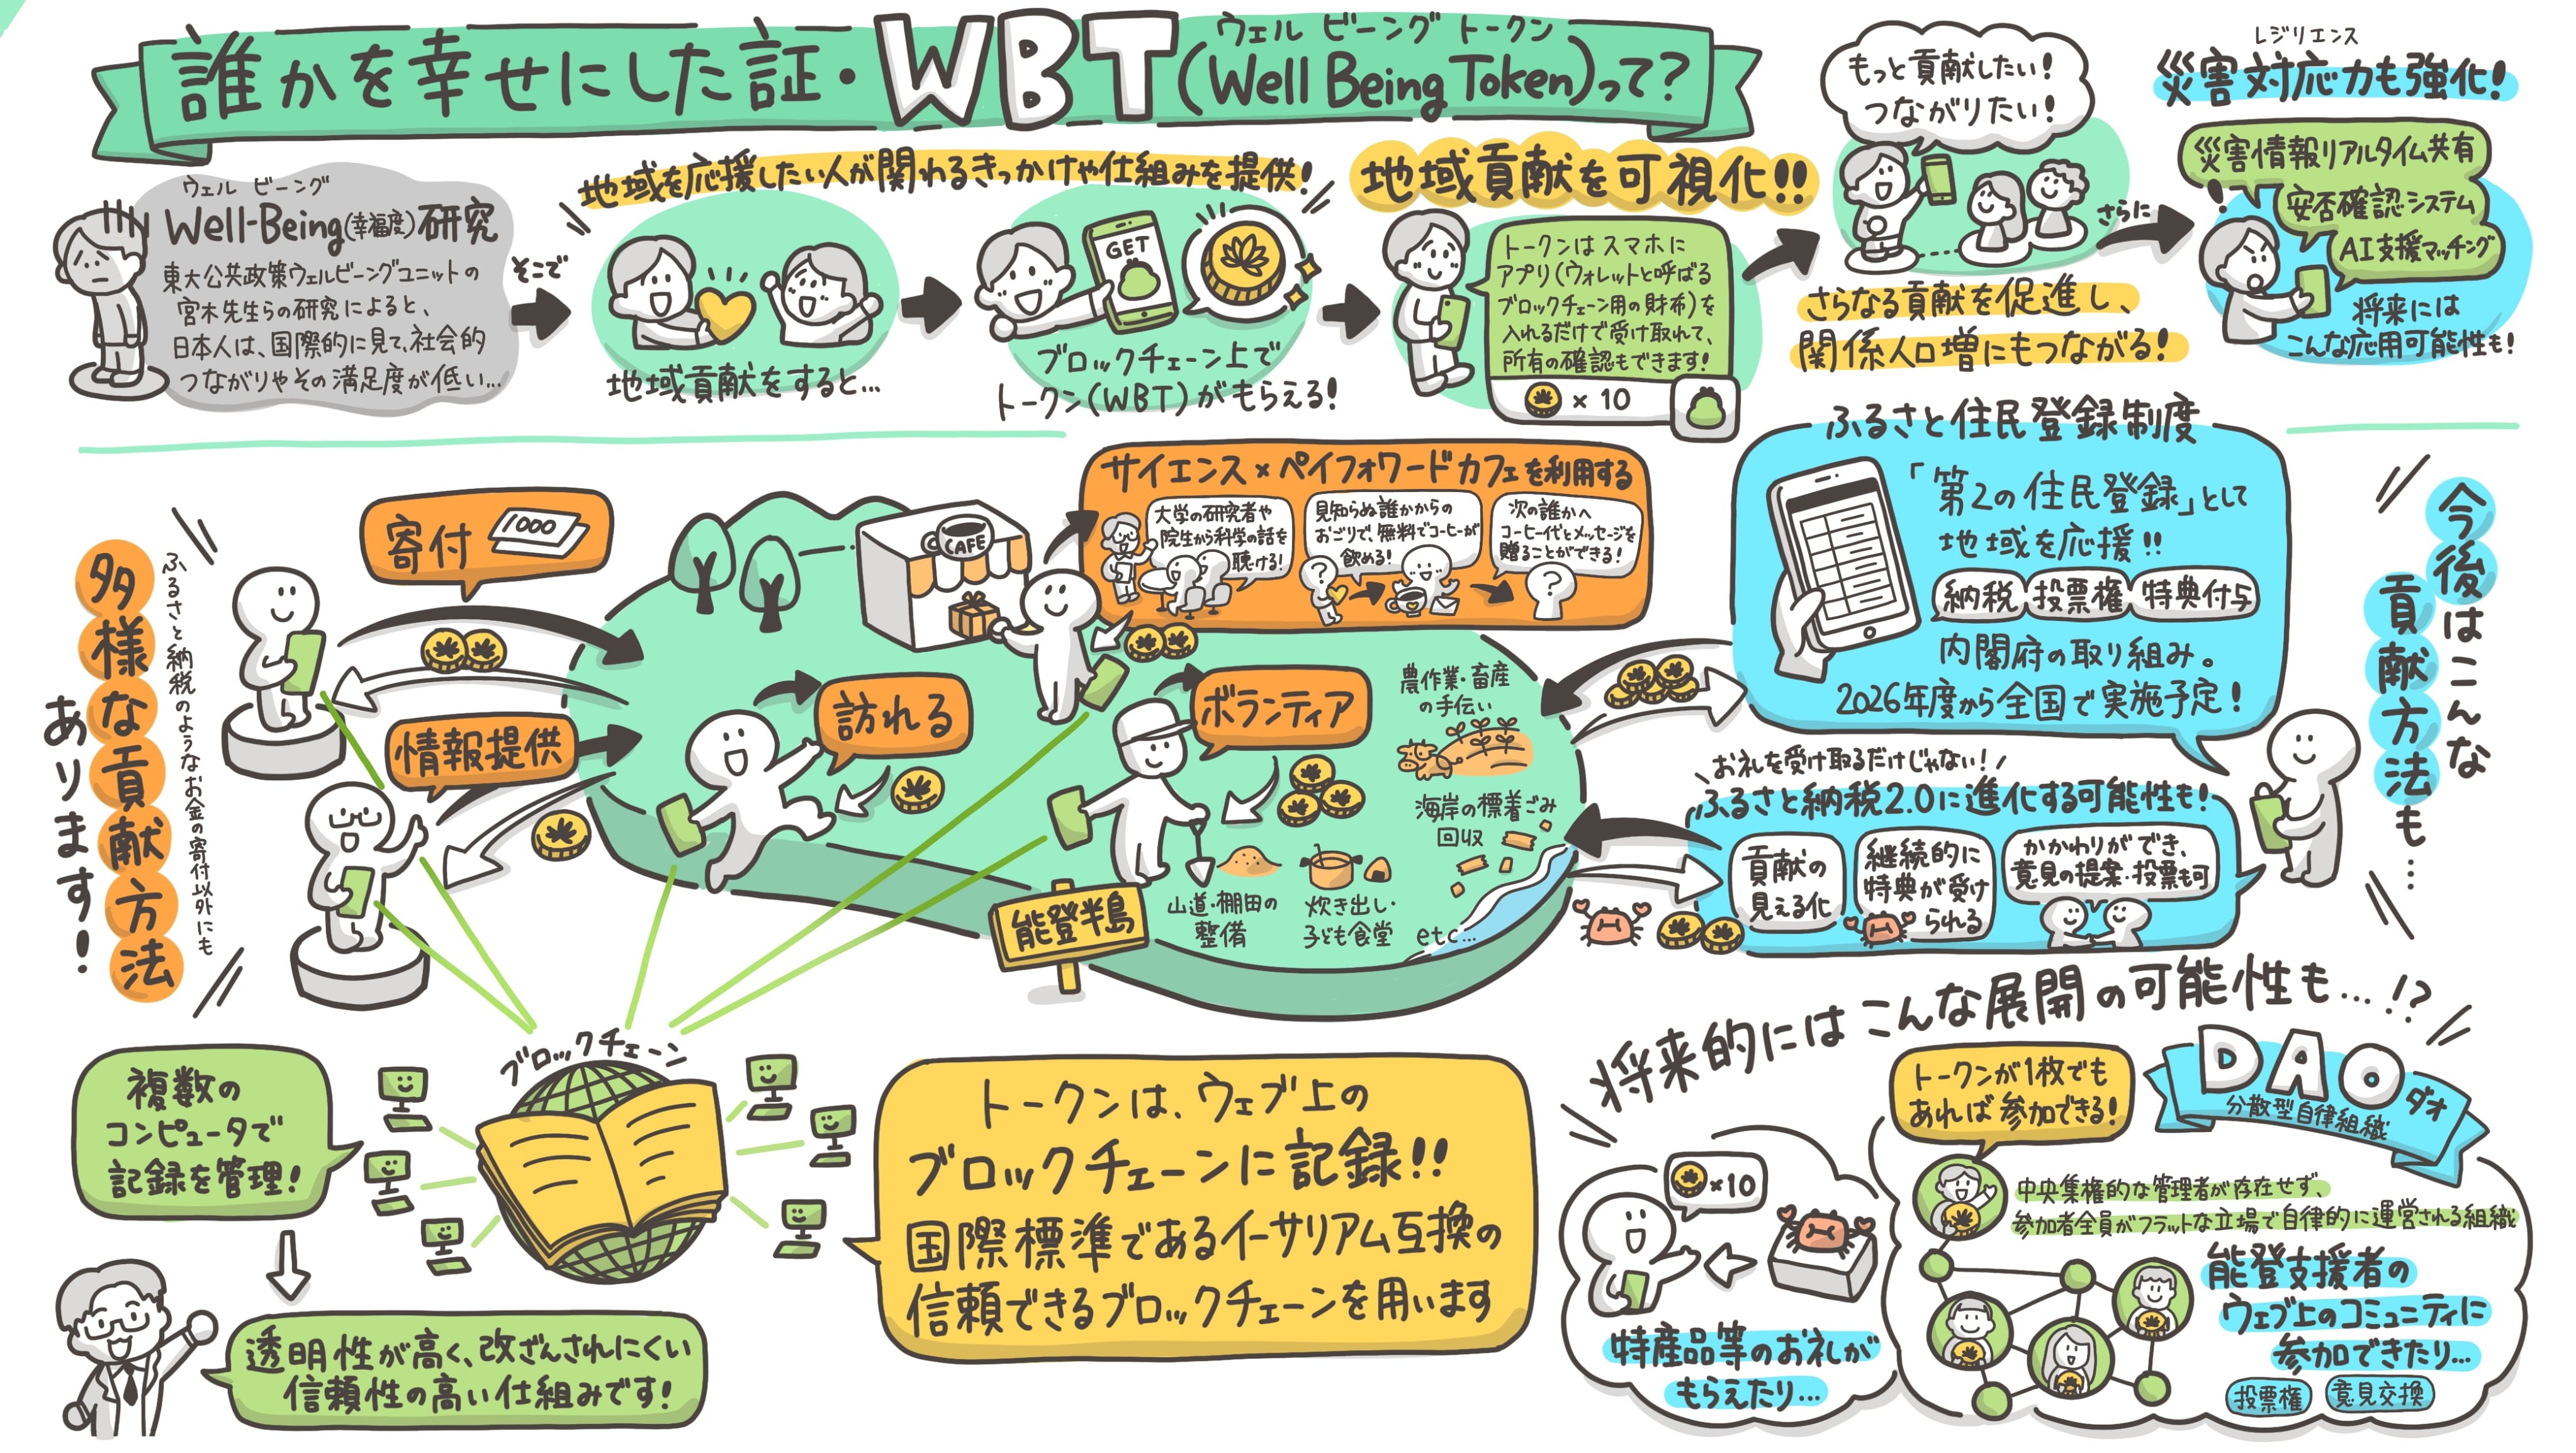 誰かを幸せにした証・WBT(Well Being Token)って?
ウェル ビーング トークン
ウェル ビーング
Well-Being(幸福度)研究
東大公共政策ウェルビーングユニットの
宮木先生らの研究によると、
日本人は、国際的に見て、社会的
つながりやその満足度が低い…
そこで
地域を応援したい人が関わるきっかけや仕組みを提供!
地域貢献をすると…
GET
ブロックチェーン上で
トークン(WBT)がもらえる!
地域貢献を可視化!!
トークンはスマホに
アプリ(ウォレットと呼ばる
ブロックチェーン用の財布)を
入れるだけで受け取れて、
所有の確認もできます!
×10
もっと貢献したい!
つながりたい!
さらなる貢献を促進し、
関係人口増にもつながる!
さらに
レジリエンス
災害対応力も強化!
災害情報リアルタイム共有
安否確認システム
AI支援マッチング
将来には
こんな応用可能性も!
多様な貢献方法
あります!
ふるさと納税のようなお金の寄付以外にも
寄付
1000
情報提供
訪れる
CAFE
サイエンス×ペイフォワードカフェを利用する
大学の研究者や
院生から科学の話を
聴ける!
見知らぬ誰かからの
おごりで、無料でコーヒーが
飲める!
次の誰かへ
コーヒー代とメッセージを
贈ることができる!
?
?
ボランティア
農作業・畜産
の手伝い
海岸の標着ごみ
回収
山道・棚田の
整備
炊き出し・
子ども食堂
etc…
能登半島
今後はこんな
貢献方法も…
ふるさと住民登録制度
「第2の住民登録」として
地域を応援!!
納税
投票権
特典付与
内閣府の取り組み。
2026年度から全国で実施予定!
お礼を受け取るだけじゃない!
ふるさと納税2.0に進化する可能性も!
貢献の
見える化
継続的に
特典が受け
られる
かかわりができ、
意見の提案・投票も可
ブロックチェーン
複数の
コンピュータで
記録を管理!
透明性が高く、改ざんされにくい
信頼性の高い仕組みです!
トークンは、ウェブ上の
ブロックチェーンに記録!!
国際標準であるイーサリアム互換の
信頼できるブロックチェーンを用います
将来的にはこんな展開の可能性も…!?
×10
特産品等のお礼が
もらえたり…
トークンが1枚でも
あれば参加できる!
DAO
ダオ
分散型自律組織
中央集権的な管理者が存在せず、
参加者全員がフラットな立場で自律的に運営される組織
能登支援者の
ウェブ上のコミュニティに
参加できたり…
投票権
意見交換